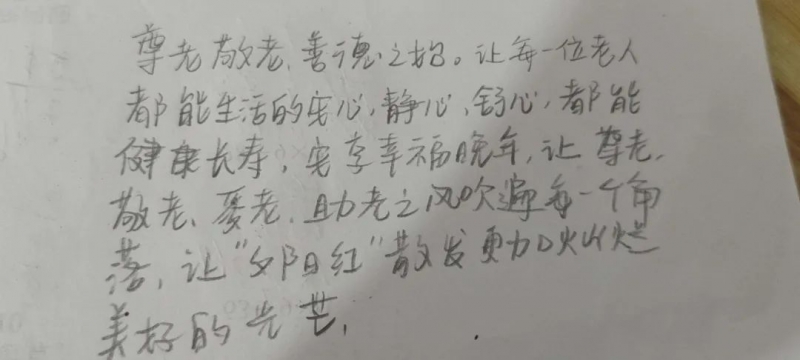 尊老敬老、善德之始。让每一位老人
都能生活的安心,静心,舒心,都能
健康长寿,安享幸福晚年,让尊老、
敬老、爱老、助老之风吹遍每一个角
落,让“夕阳红”散发更加灿烂
美好的光芒.